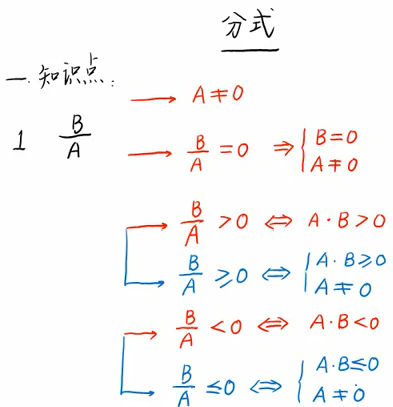 分式
一.知识点:
→ A≠0
1 B/A
→ B/A=0 ⇒ { B=0
A≠0
→ B/A>0 ⇔ A·B>0
→ B/A≥0 ⇔ { A·B≥0
A≠0
→ B/A<0 ⇔ A·B<0
→ B/A≤0 ⇔ { A·B≤0
A≠0